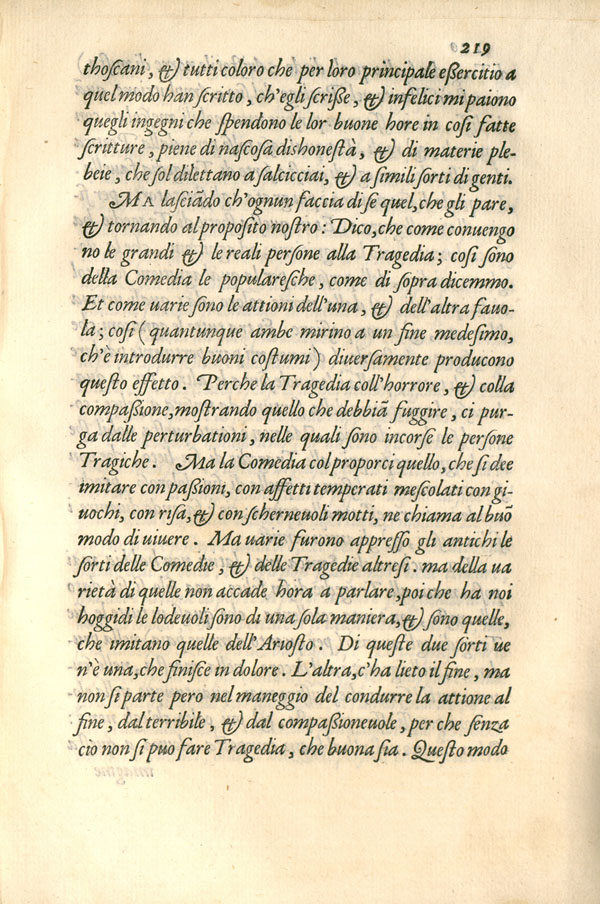 219
thoscani, & tutti coloro che per loro principale eßercitio a
quel modo han scritto, ch'egli scriße, & infelici mi paiono
quegli ingegni che spendono le lor buone hore in cosi fatte
scritture, piene di nascosa dishonestà, & di materie ple-
beie, che sol dilettano a salcicciai, & a simili sorti di genti.
MA lasciãdo ch'ognun faccia di se quel, che gli pare,
& tornando al proposito nostro: Dico, che come conuengo
no le grandi & le reali persone alla Tragedia; cosi sono
della Comedia le popularesche, come di sopra dicemmo.
Et come uarie sono le attioni dell'una, & dell'altra fauo-
la; cosi (quantunque ambe mirino a un fine medesimo,
ch'è introdurre buoni costumi) diuersamente producono
questo effetto. Perche la Tragedia coll'horrore, & colla
compaßione, mostrando quello che debbiã fuggire, ci pur-
ga dalle perturbationi, nelle quali sono incorse le persone
Tragiche. Ma la Comedia col proporci quello, che si dee
imitare con paßioni, con affetti temperati mescolati con gi-
uochi, con risa, & con scherneuoli motti, ne chiama al buõ
modo di uiuere. Ma uarie furono appresso gli antichi le
sorti delle Comedie, & delle Tragedie altresi. ma della ua
rietà di quelle non accade hora a parlare, poi che ha noi
hoggidi le lodeuoli sono di una sola maniera, & sono quelle,
che imitano quelle dell'Ariosto. Di queste due sorti ue
n'è una, che finisce in dolore. L'altra, c'ha lieto il fine, ma
non si parte pero nel maneggio del condurre la attione al
fine, dal terribile, & dal compaßioneuole, per che senza
cio non si puo fare Tragedia, che buona sia. Questo modo